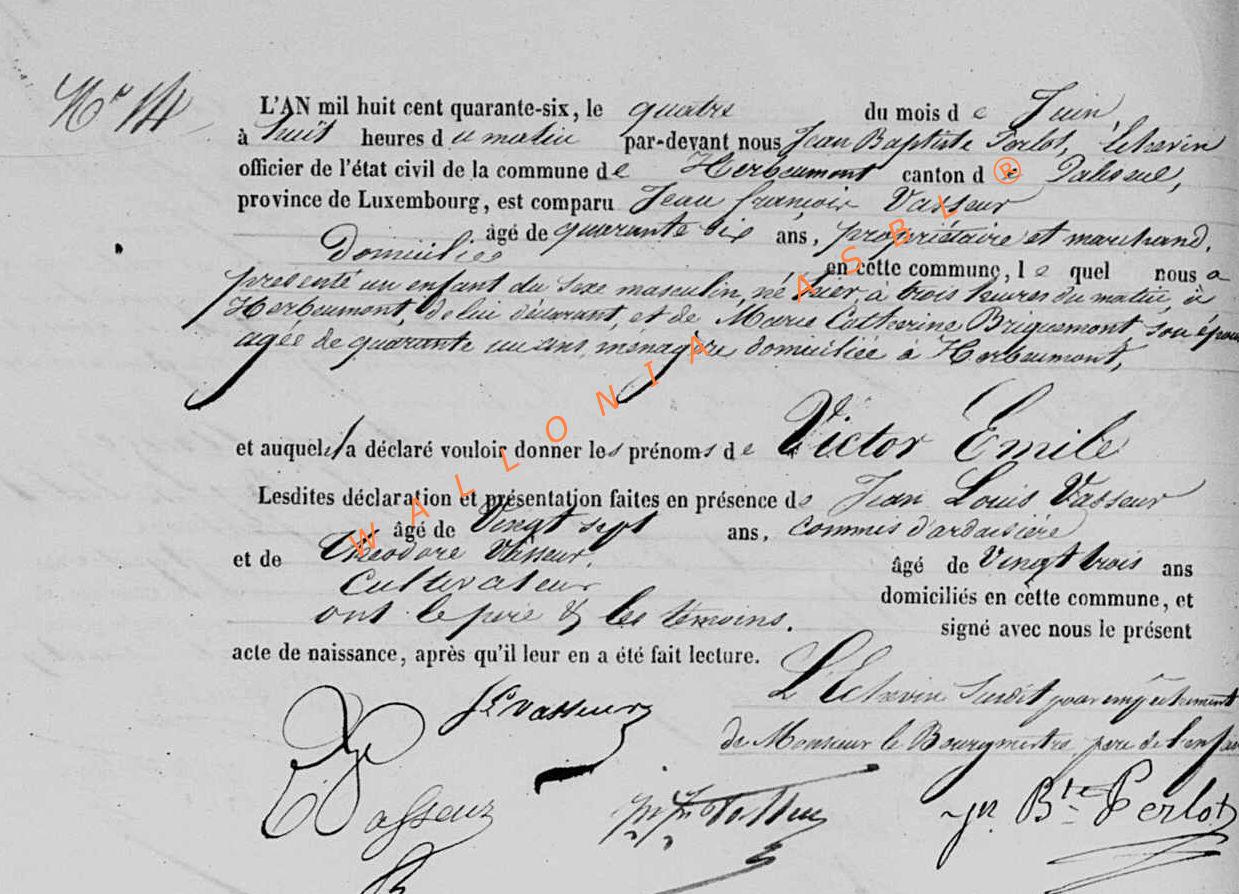 N° 14
L'AN mil huit cent quarante-six, le quatre du mois de Juin,
à huit heures du matin par-devant nous Jean Baptiste Perlot, Echevin
officier de l'état civil de la commune de Herbeumont canton de Paliseul,
province de Luxembourg, est comparu Jean françois Vasseur
âgé de quarante six ans, propriétaire et marchand,
Domicilié en cette commune, lequel nous a
présenté un enfant du sexe masculin, né hier, à trois heures du matin, à
Herbeumont, de lui déclarant, et de Marie Catherine Briquemont son épou
agée de quarante un ans, menagère domiciliée à Herbeumont,
et auquel il a déclaré vouloir donner les prénoms de Victor Emile
Lesdites déclaration et présentation faites en présence de Jean Louis Vasseur
âgé de Vingt sept ans, commis d'ardoisière
et de Théodore Vasseur, âgé de Vingt trois ans
Cultivateur domiciliés en cette commune, et
ont le père & les témoins. signé avec nous le présent
acte de naissance, après qu'il leur en a été fait lecture.
L'Echevin Susdit pour empêchement
de Monsieur le Bourgmestre, père de l'enfan
JLVasseur
Vasseur
Jn Bte Perlot
WALLONIA ASBL ®